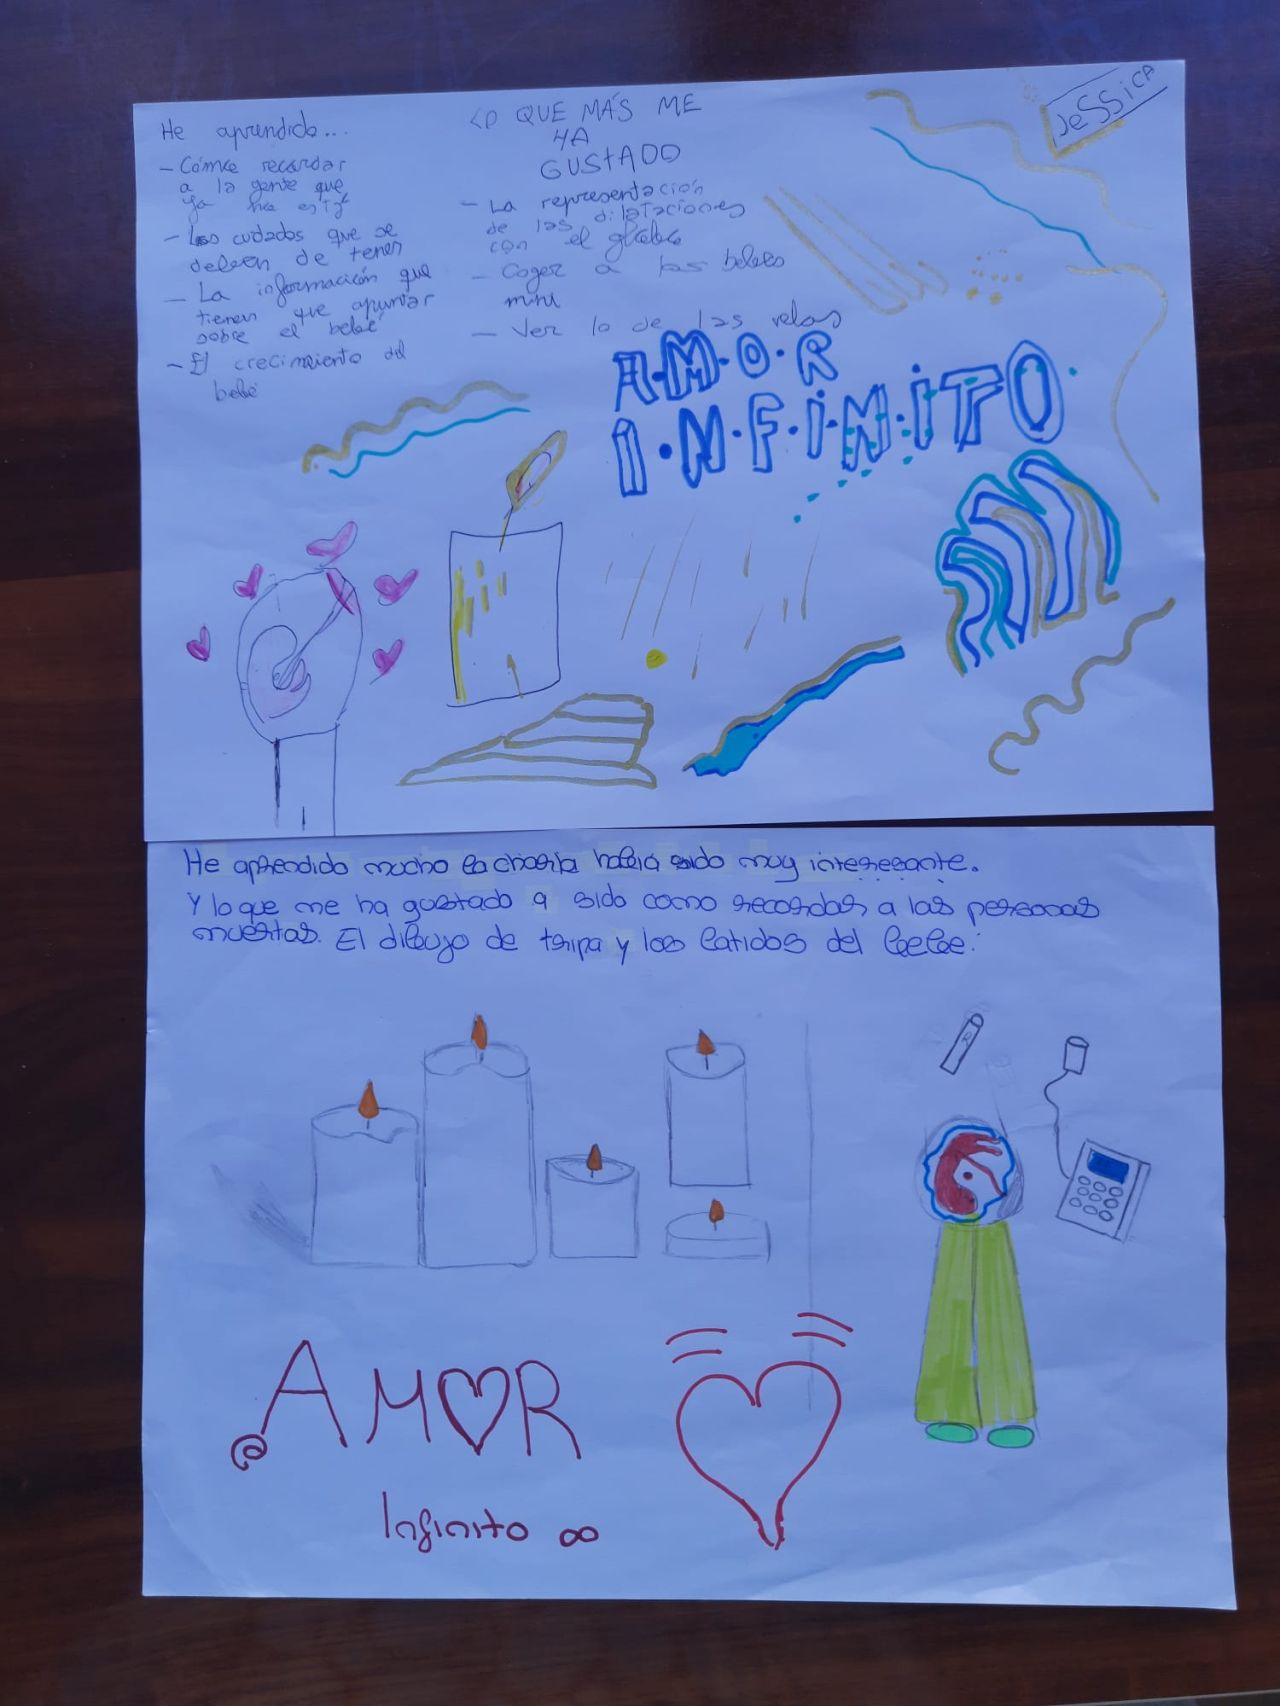 He aprendido...
- Cómo recordar
a la gente que
ya no está
- Los cuidados que se
deben de tener
- La información que
tienen que apuntar
sobre el bebé
- El crecimiento del
bebé
LO QUE MÁS ME
HA
GUSTADO
- La representación
de las dilataciones
con el globo
- Coger a los bebés
mini
- Ver lo de las velas
JESSICA
A·M·O·R
I·N·F·I·N·I·TO
He aprendido mucho la charla había sido muy interesante.
Y lo que me ha gustado a sido como recordar a las personas
muertas. El dibujo de tripa y los latidos del bebe.
AMOR
Infinito ∞